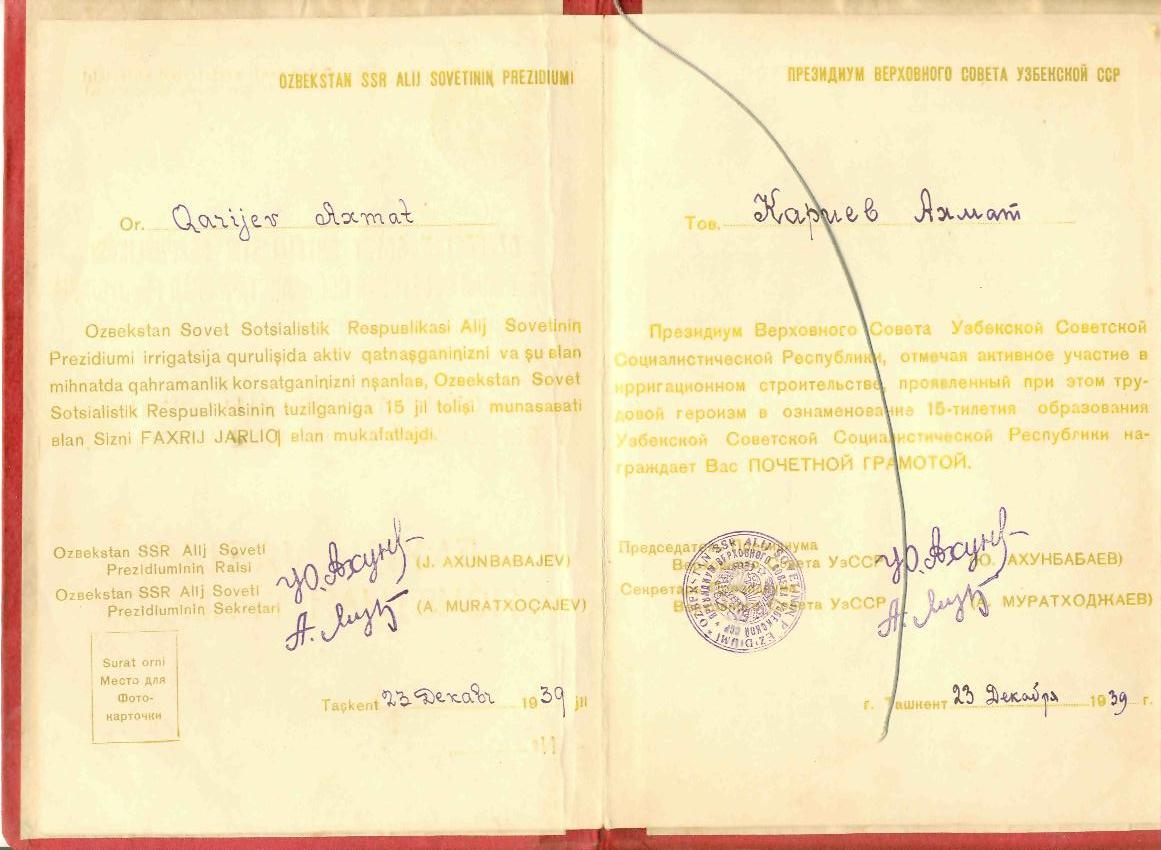 OZBEKSTAN SSR ALIJ SOVETININ̡ PREZIDIUMI
Or. Qarijev Axmat
Ozʙekstan Sovet Sotsialistik Respuʙlikasi Alij Sovetinin̡
Prezidiumi irrigatsija qurulişida aktiv qatnaşganin̡izni va şu ʙlan
mihnatda qahramanlik korsatganin̡izni nşanlaʙ, Ozʙekstan Sovet
Sotsialistik Respuʙlikasinin tuzilganiga 15 jil tolişi munasaʙati
ʙlan Sizni FAXRIJ JARLIQ ʙlan mukafatlajdi.
Ozʙekstan SSR Alij Soveti
Prezidiuminin Raisi
(J. AXUNBABAJEV)
Ozʙekstan SSR Alij Soveti
Prezidiuminin Sekretari
(A. MURATXOÇAJEV)
Surat orni
Место для
Фото-
карточки
Taşkent 23 Декабр 1939 jil
ПРЕЗИДИУМ ВЕРХОВНОГО СОВЕТА УЗБЕКСКОЙ ССР
Тов. Кариев Ахмат
Президиум Верховного Совета Узбекской Советской
Социалистической Республики, отмечая активное участие в
ирригационном строительстве, проявленный при этом тру-
довой героизм в ознаменование 15-тилетия образования
Узбекской Советской Социалистической Республики на-
граждает Вас ПОЧЕТНОЙ ГРАМОТОЙ.
Председатель Президиума
Верховного Совета УзССР
(Ю. АХУНБАБАЕВ)
Секретарь
Верховного Совета УзССР
(А. МУРАТХОДЖАЕВ)
г. Ташкент 23 Декабря 1939 г.